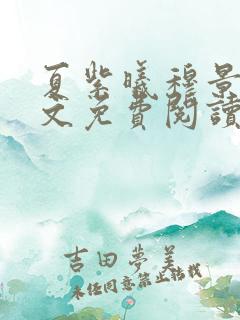 夏紫曦穆景
文免費閱讀
吉田夢美
未經同意禁止轉載